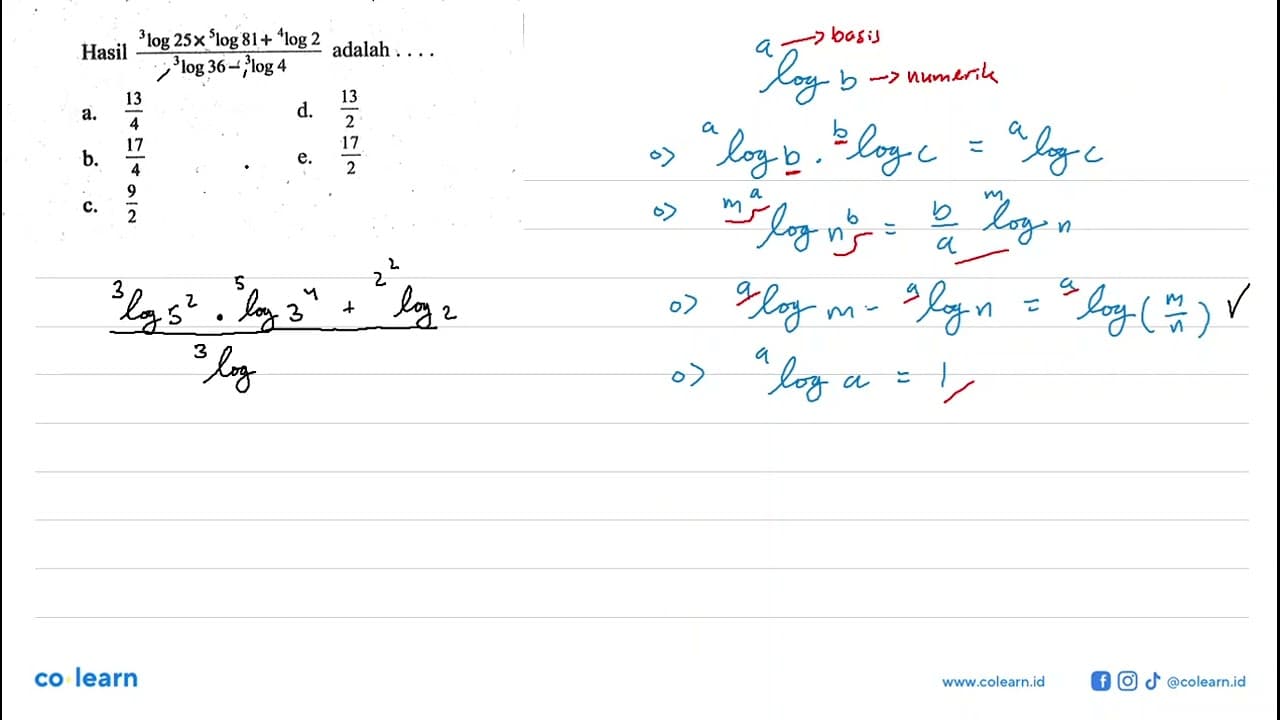 Hasil \frac{^3log 25 x ^5log 81 + ^4log 2}{^3log 36 - ^3log 4} adalah . . . .
a. 13/4 d. 13/2
b. 17/4 e. 17/2
c. 9/2
\frac{^3log 5^2 . ^5log 3^4 + ^{2^2}log 2}{^3log}
^a log b → basis → numerik
=> ^a log b . ^b log c = ^a log c
=> ^{m^a} log n^b = b/a ^m log n
=> ^a log m - ^a log n = ^a log (m/n) ✓
=> ^a log a = 1
co learn
www.colearn.id @colearn.id